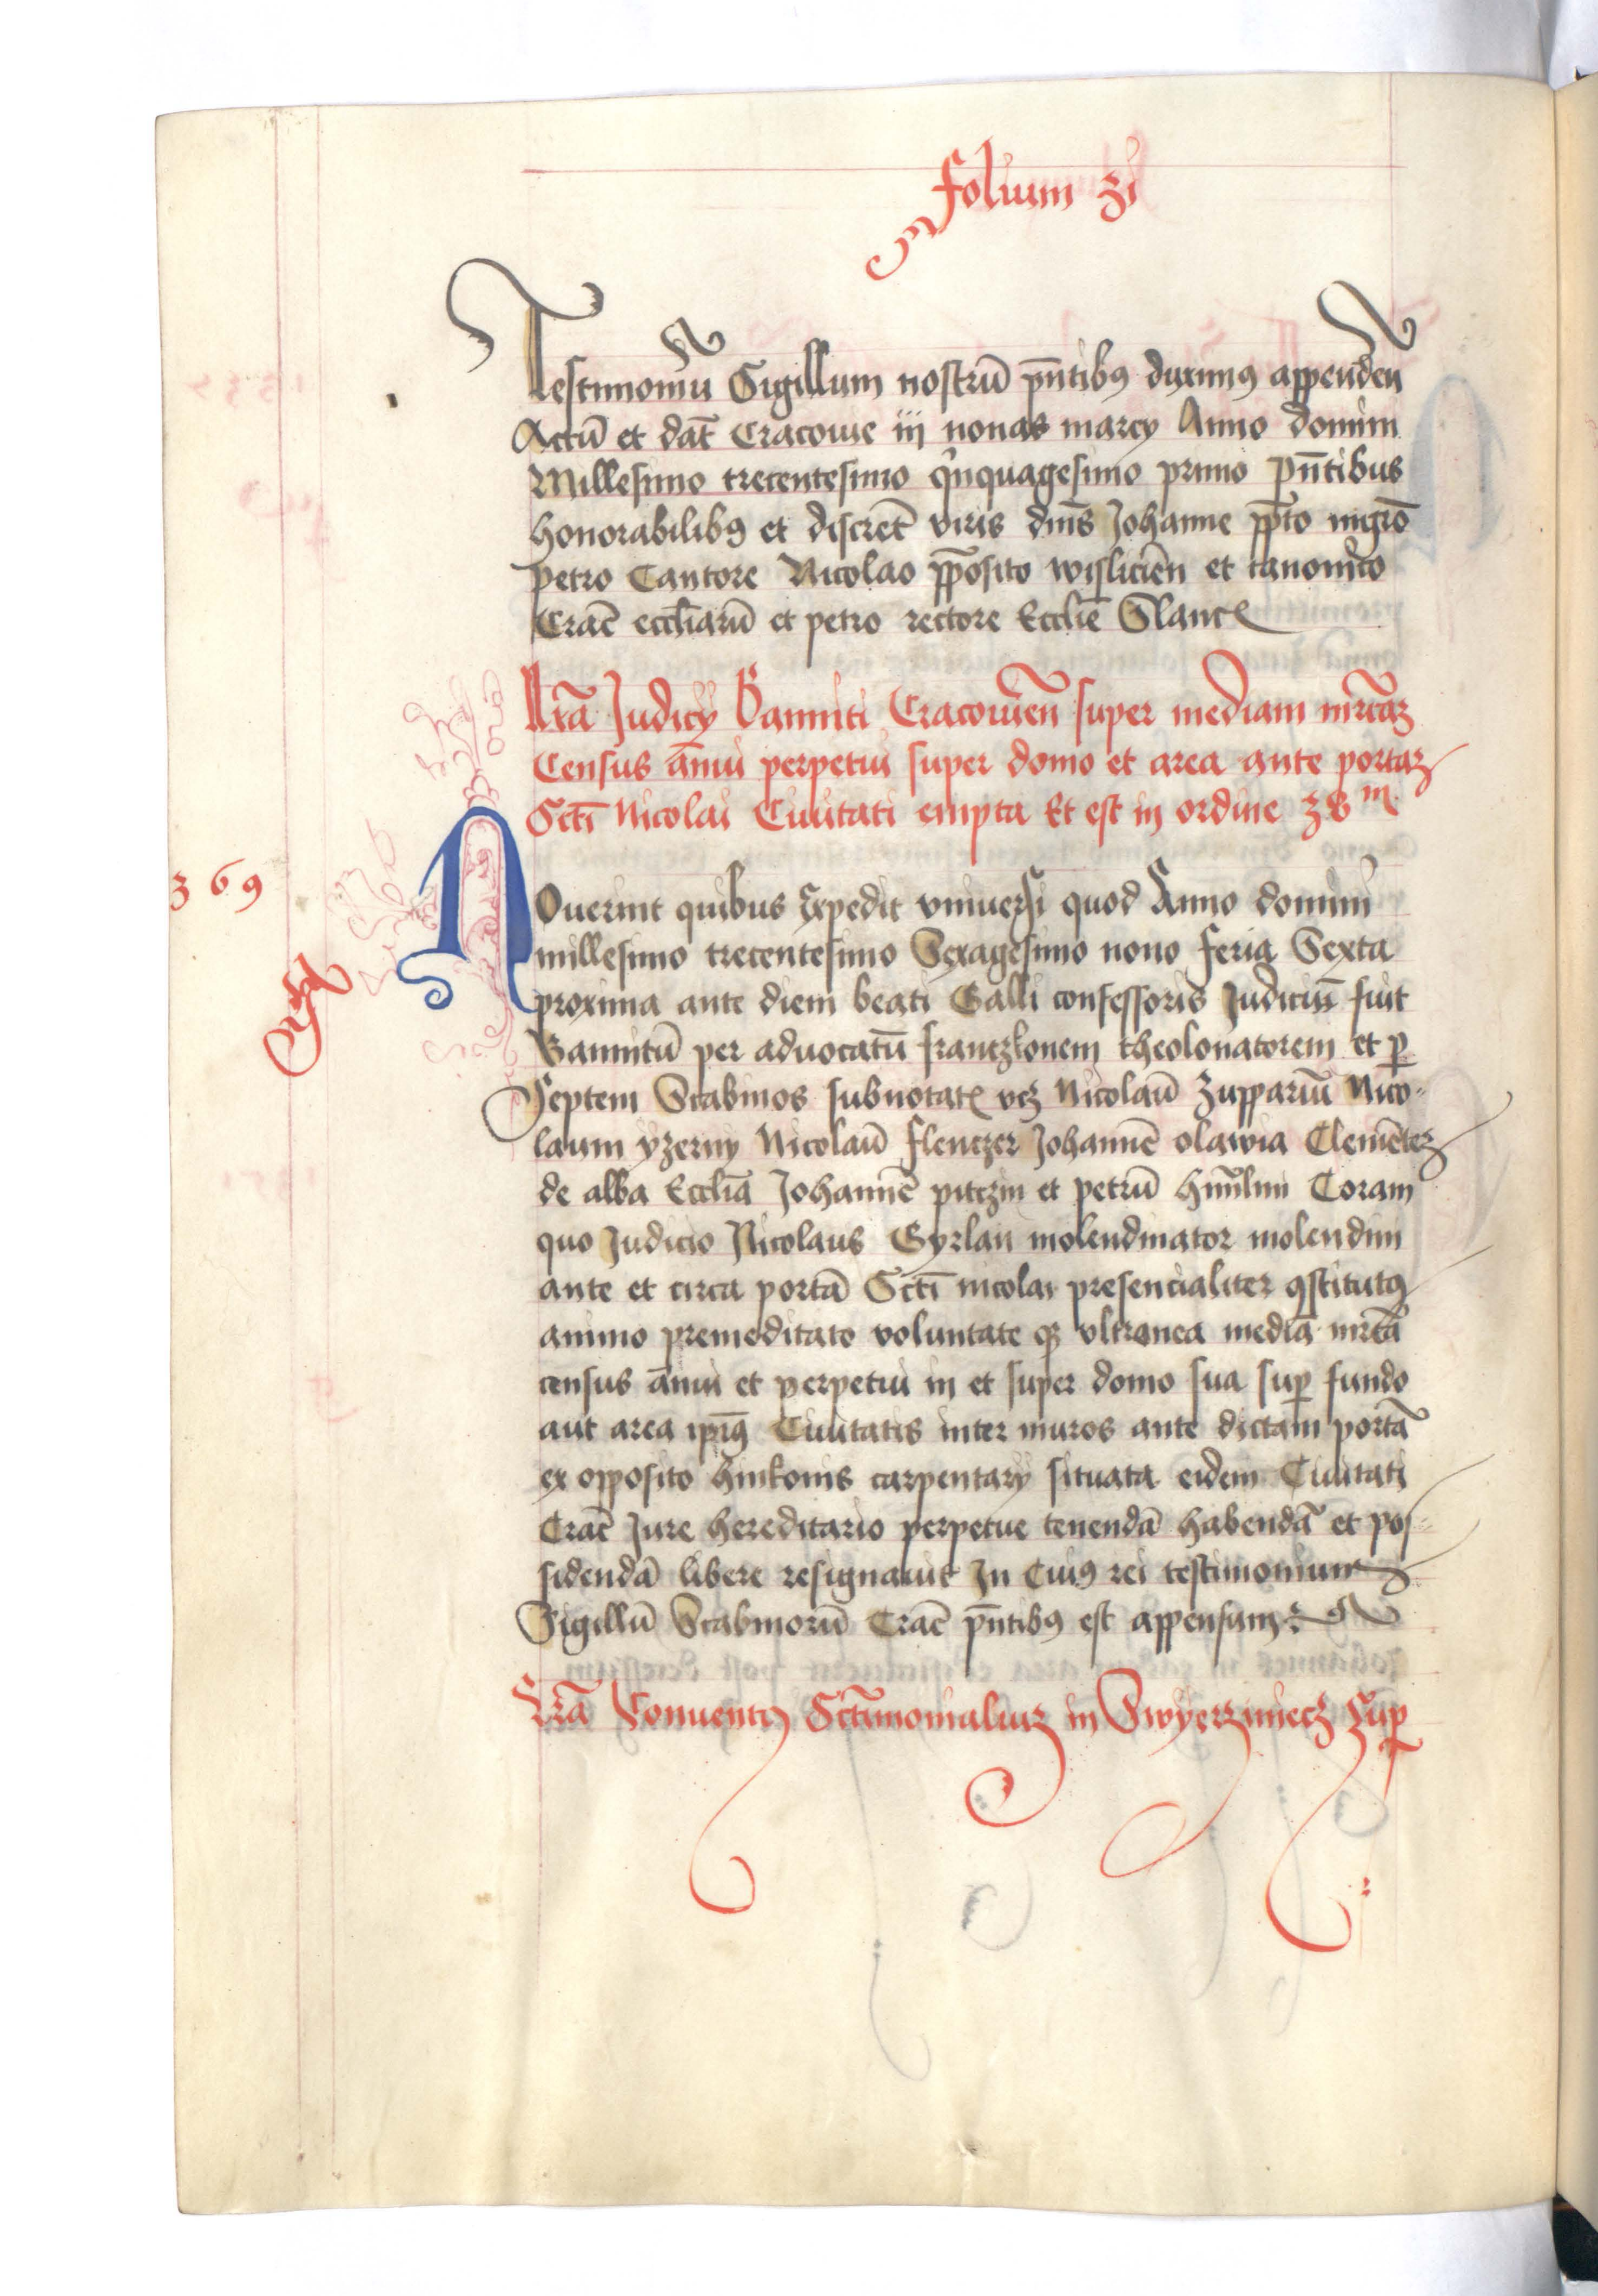 folium zi
Testimoniu Sigillum nostrū pn̄tibꝯ duximꝯ appenden
Actū et dat̄ Cracouie iij nonas marcy Anno domini
Millesimo trecentesimo qinquagesimo primo Pn̄tibus
honorabilibꝯ et discret̄ viris dnīs Johanne pp̄to nigro
petro Cantore Nicolao pp̄osito wislicien̄ et canonico
Crac̄ eccliarū et petro rectore Ecclie
Lrā Judicy Banniti Cracouien̄ super mediam mrcaȝ
Census annui perpetui super domo et area ante portaȝ
Scti Nicolai Ciuitati empta Et est in ordine
Nouerint quibus Expedit vniuersi quod Anno domini
369
millesimo trecentesimo Sexagesimo nono feria Sexta
proxima ante diem beati Galli confessoris Judiciū fuit
Bannitū per aduocatū frantzkonem theolonatorem et ꝑ
Septem Scabinos subnotatꝭ vcȝ Nicolaū Zuppariū Nico-
laum yzerny Nicolaū flentzer Johannē olawia Clemēteȝ
de alba Ecclia Johannē pitczin et petrū Coram
quo Judicio Nicolaus Gyrlan molendinator molendini
ante et circa portā Scti nicolai presencialiter ꝯstitutꝯ
animo premeditato voluntate qꝫ vltranea mediā mrcā
census annui et perpetui in et super domo sua suꝑ fundo
aut area ipiꝯ Ciuitatis inter muros ante dictam portā
ex opposito hinkonis carpentary situata eidem Ciuitati
Crac̄ Jure hereditario perpetue tenendā habendā et pos-
sidendā libere resignauit In Cuiꝯ rei testimonium
Sigillū Scabinorū Crac̄ pn̄tibꝯ est appensum
Lrā Conuentꝯ Sctimonialiuȝ in Swyerziniecȝ Suꝑ